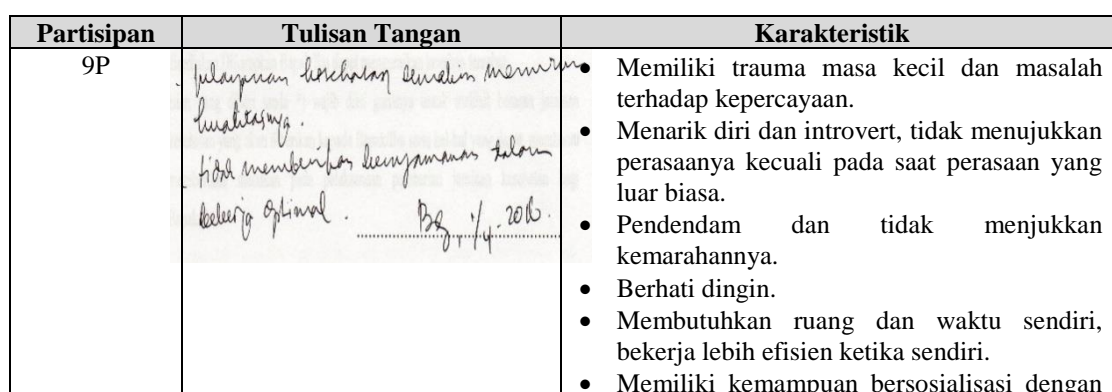 Partisipan Tulisan Tangan Karakteristik
9P
- pelayanan kesehatan semakin menurun
kualitasnya.
- tidak memberikan kenyamanan dalam
bekerja optimal.
Bdg, 1/4-2016.
• Memiliki trauma masa kecil dan masalah
terhadap kepercayaan.
• Menarik diri dan introvert, tidak menujukkan
perasaanya kecuali pada saat perasaan yang
luar biasa.
• Pendendam dan tidak menjukkan
kemarahannya.
• Berhati dingin.
• Membutuhkan ruang dan waktu sendiri,
bekerja lebih efisien ketika sendiri.
• Memiliki kemampuan bersosialisasi dengan